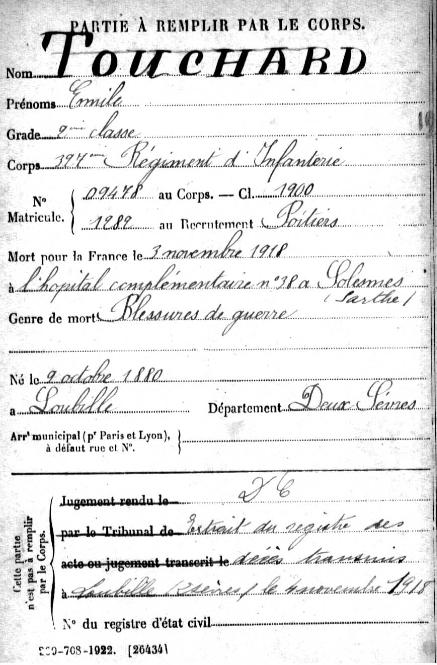 PARTIE À REMPLIR PAR LE CORPS.
Nom TOUCHARD
Prénoms Emile
Grade 2me classe
Corps 397me Régiment d'Infanterie
N° Matricule. { 09478 au Corps. — Cl. 1900
1282 au Recrutement Poitiers
Mort pour la France le 3 novembre 1918
à l'hopital complémentaire n°38 a Solesmes
(Sarthe)
Genre de mort Blessures de guerre
Né le 9 octobre 1880
a Loubillé Département Deux Sèvres
Arrt municipal (pr Paris et Lyon), }
à défaut rue et N°.
Cette partie n'est pas à remplir par le Corps.
Jugement rendu le D C
par le Tribunal de Extrait du registre des
acte ou jugement transcrit le décès transmis
à Loubillé (2 Sèvres) le 4 novembre 1918
N° du registre d'état civil
-708-1922. [26434]